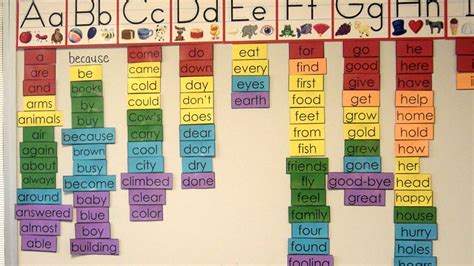 Aa Bb Cc Dd Ee Ff Gg Hh
a
are
and
arms
animals
air
again
about
always
around
answered
almost
able
because
be
books
by
buy
because
brown
busy
become
baby
blue
boy
building
come
came
cold
could
Cow's
carry
cool
city
climbed
clear
color
do
down
day
don't
does
dear
door
dry
done
eat
every
eyes
earth
for
find
first
food
feet
from
fish
friends
fly
feel
family
four
found
go
good
give
get
grow
gold
grew
gone
good-bye
great
he
here
have
help
home
hold
her
head
happy
house